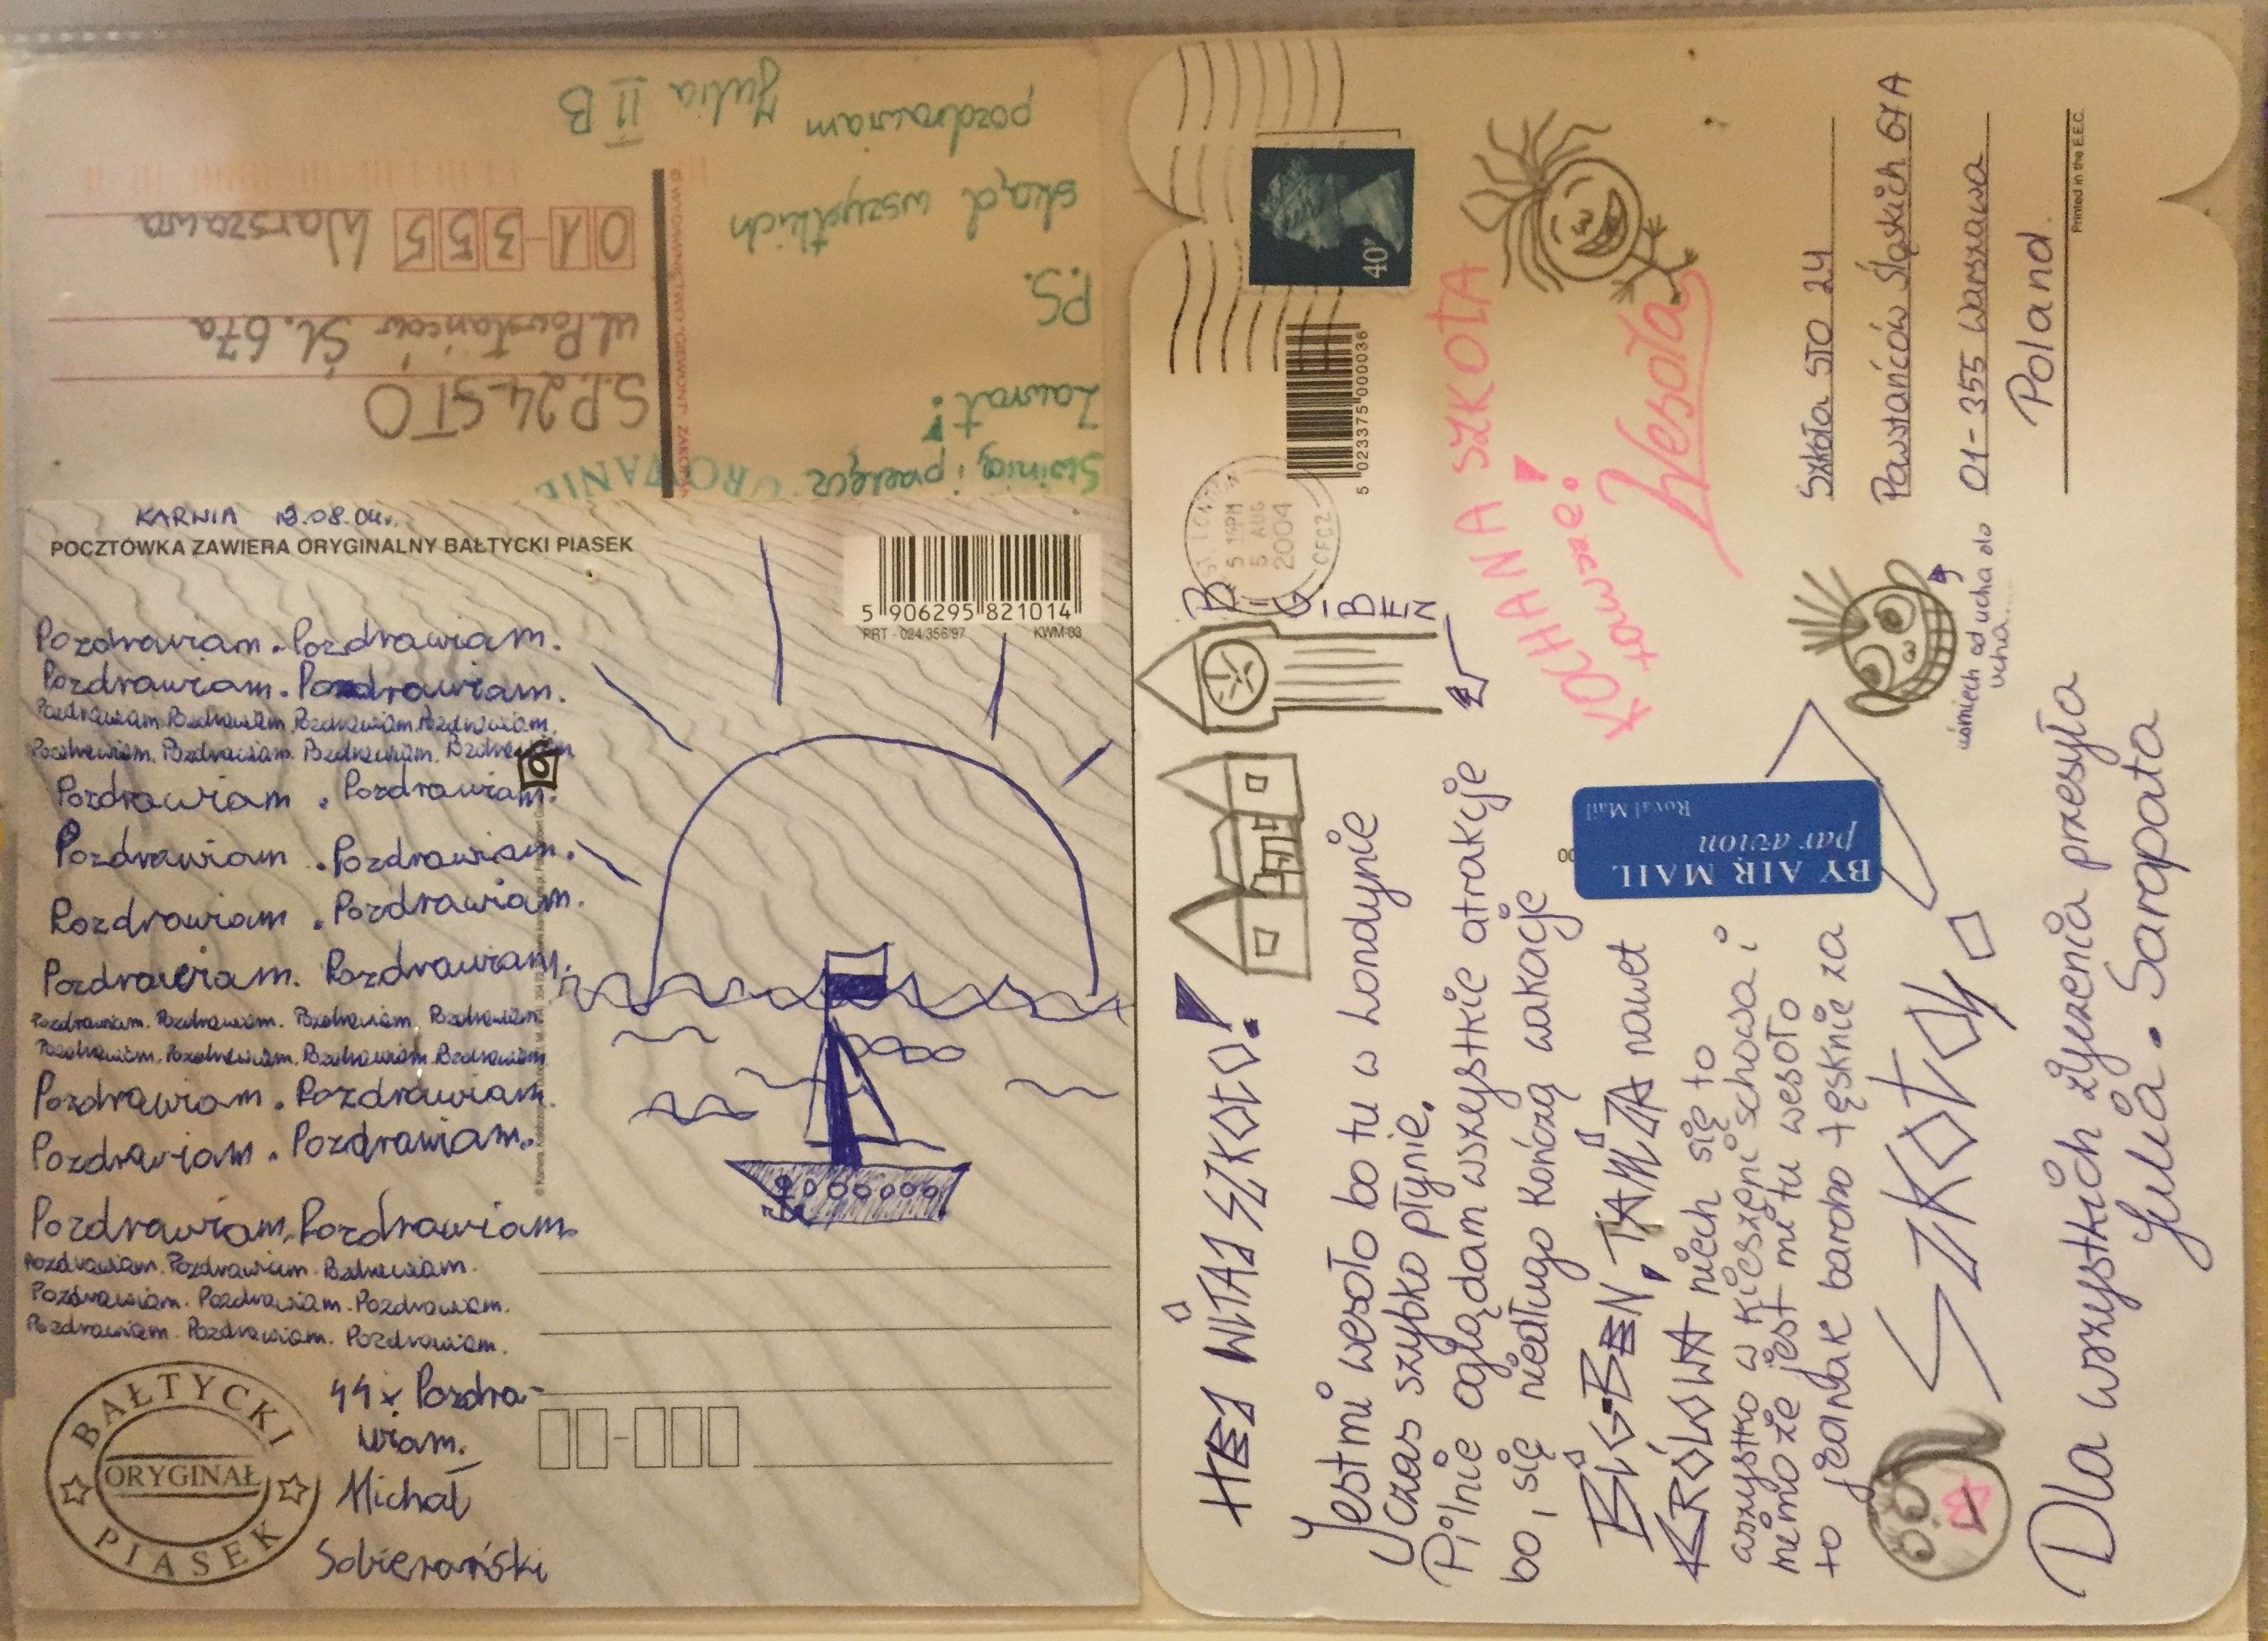 KARNIA 13.08.04r.
POCZTÓWKA ZAWIERA ORYGINALNY BAŁTYCKI PIASEK
5 906295 821014
PRT - 024/356/97 KWM-03
Pozdrawiam. Pozdrawiam.
Pozdrawiam. Pozdrawiam.
Pozdrawiam. Pozdrawiam. Pozdrawiam. Pozdrawiam.
Pozdrawiam. Pozdrawiam. Pozdrawiam. Pozdrawiam
Pozdrawiam. Pozdrawiam.
Pozdrawiam. Pozdrawiam.
Pozdrawiam. Pozdrawiam.
Pozdrawiam. Pozdrawiam.
Pozdrawiam. Pozdrawiam. Pozdrawiam. Pozdrawiam.
Pozdrawiam. Pozdrawiam. Pozdrawiam. Pozdrawiam
Pozdrawiam. Pozdrawiam.
Pozdrawiam. Pozdrawiam.
Pozdrawiam. Pozdrawiam.
Pozdrawiam. Pozdrawiam. Pozdrawiam.
Pozdrawiam. Pozdrawiam. Pozdrawiam.
Pozdrawiam. Pozdrawiam. Pozdrawiam.
44x Pozdra-
wiam.
Michał
Sobierański
BAŁTYCKI
ORYGINAŁ
PIASEK
Świnicą i przełęcz
Zawrat!
P.S.
skąd wszystkich
pozdrawiam Julia II B
S.P. 24 STO
ul. Powstańców Śl. 67a
01-355 Warszawa
HEJ WITAJ SZKOŁO!
BIG BEN
Jest mi wesoło bo tu w Londynie
Czas szybko płynie.
Pilnie oglądam wszystkie atrakcje
bo, się niedługo kończą wakacje
BIG-BEN, TAMIZA nawet
KRÓLOWA niech się to
wszystko w kieszeni schowa i
mimo że jest mi tu wesoło
to jednak bardzo tęsknię za
SZKOŁĄ
Dla wszystkich życzenia przesyła
Julia. Sarapata
5 023375 000036
5 AUG
2004
40P
KOCHANA SZKOŁA
zawsze!
Wesoła
BY AIR MAIL
par avion
Royal Mail
uśmiech od ucha do
ucha....
Szkoła STO 24
Powstańców Śląskich 67A
01-355 Warszawa
Poland.
Printed in the E.E.C.